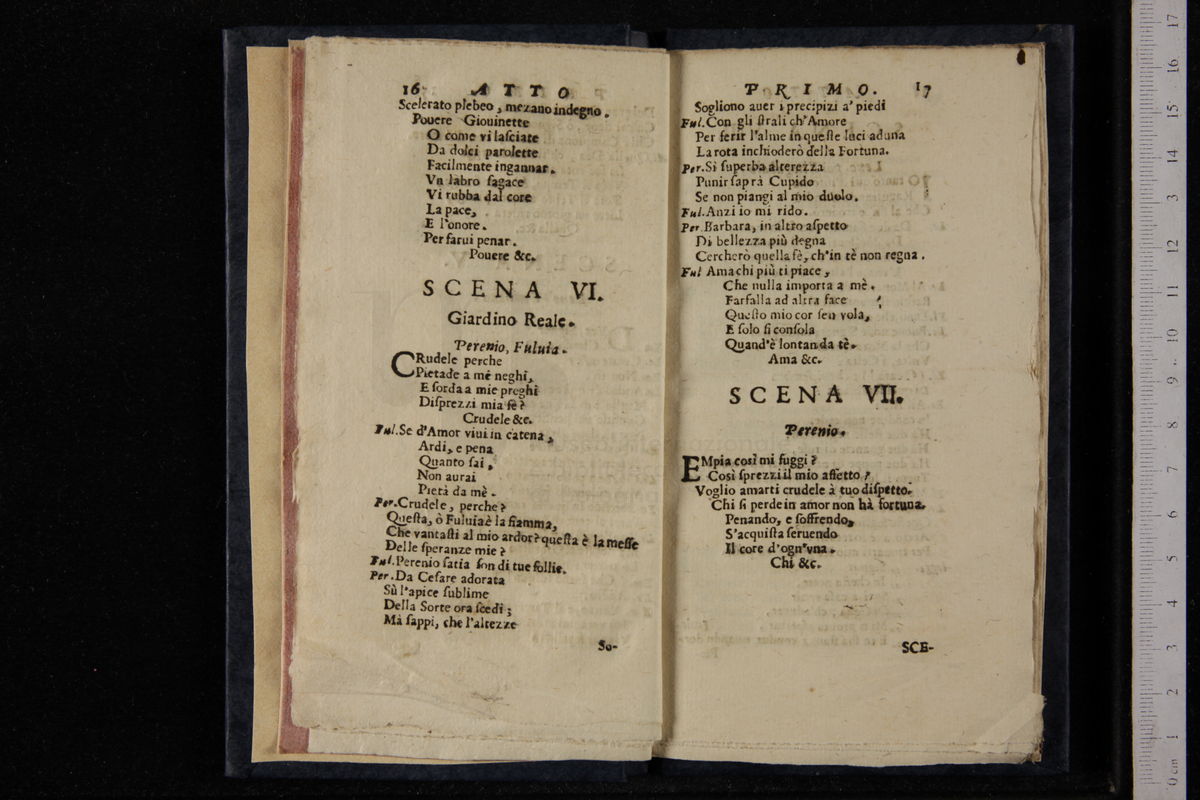 16 ATTO
Scelerato plebeo, mezano indegno.
Pouere Giouinette
O come vi laſciate
Da dolci parolette
Facilmente ingannar.
Vn labro ſagace
Vi rubba dal core
La pace,
E l'onore.
Per farui penar.
Pouere &c.
SCENA VI.
Giardino Reale.
Perenio, Fuluia.
CRudele perche
Pietade a mè neghi,
E ſorda a mie preghi
Diſprezzi mia fè?
Crudele &c.
Ful. Se d'Amor viui in catena,
Ardi, e pena
Quanto ſai,
Non aurai
Pietà da mè.
Per. Crudele, perche?
Queſta, ò Fuluia è la fiamma,
Che vantaſti al mio ardor? queſta è la meſſe
Delle ſperanze mie?
Ful. Perenio ſatia ſon di tue follie.
Per. Da Ceſare adorata
Sù l'apice ſublime
Della Sorte ora ſiedi;
Mà ſappi, che l'altezze
So-
PRIMO. 17
Sogliono auer i precipizi a' piedi
Ful. Con gli ſtrali ch'Amore
Per ferir l'alme in queſte luci aduna
La rota inchioderò della Fortuna.
Per. Sì ſuperba alterezza
Punir ſaprà Cupido
Se non piangi al mio duolo.
Ful. Anzi io mi rido.
Per. Barbara, in altro aſpetto
Di bellezza più degna
Cercherò quella fè, ch'in tè non regna.
Ful Ama chi più ti piace,
Che nulla importa a mè.
Farfalla ad altra face
Queſto mio cor ſen vola,
E ſolo ſi conſola
Quand'è lontan da tè.
Ama &c.
SCENA VII.
Perenio.
EMpia così mi fuggi?
Così ſprezzi il mio affetto?
Voglio amarti crudele à tuo diſpetto.
Chi ſi perde in amor non hà fortuna.
Penando, e ſoffrendo,
S'acquiſta ſeruendo
Il core d'ogn'vna.
Chi &c.
SCE-
0 cm 1 2 3 4 5 6 7 8 9 10 11 12 13 14 15 16 17